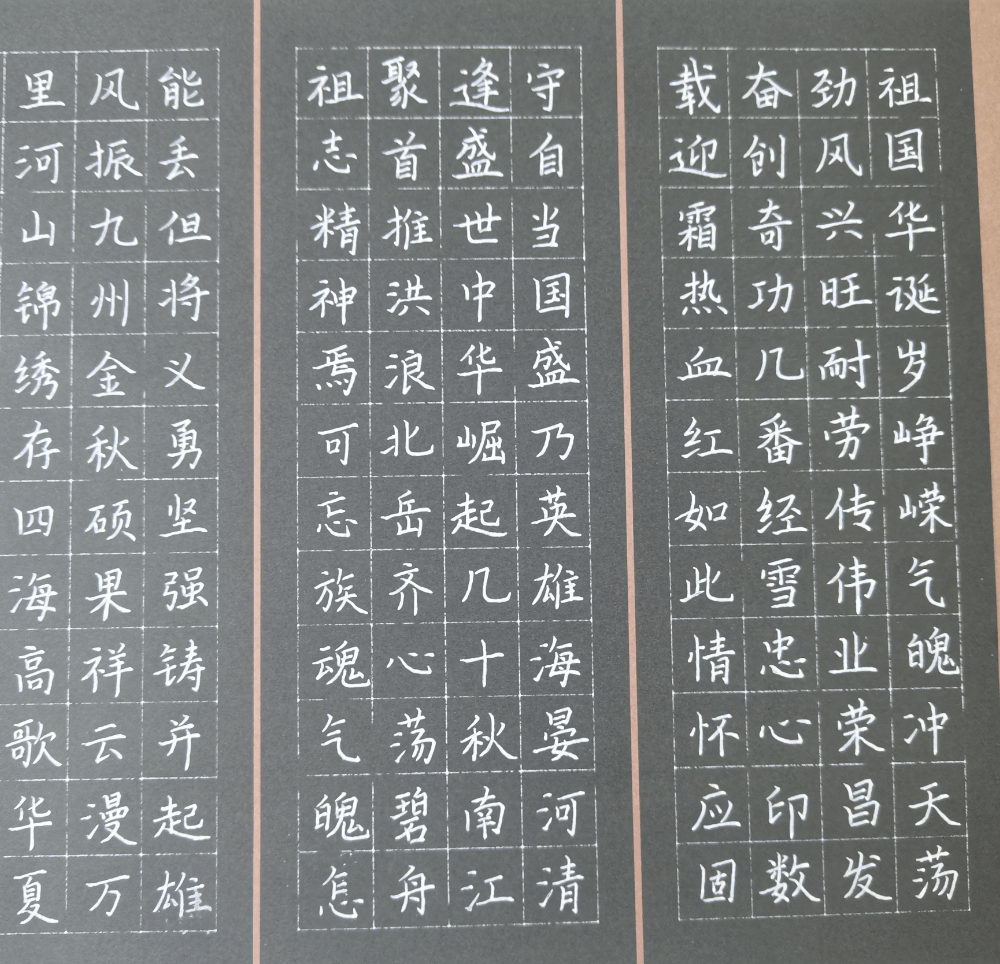 祖国华诞岁峥嵘气魄冲天荡
劲风兴旺耐劳传伟业荣昌发
奋创奇功几番经雪忠心印数
载迎霜热血红如此情怀应固
守自当国盛乃英雄海晏河清
逢盛世中华崛起几十秋南江
聚首推洪浪北岳齐心荡碧舟
祖志精神焉可忘族魂气魄怎
能丢但将义勇坚强铸并起雄
风振九州金秋硕果祥云漫万
里河山锦绣存四海高歌华夏